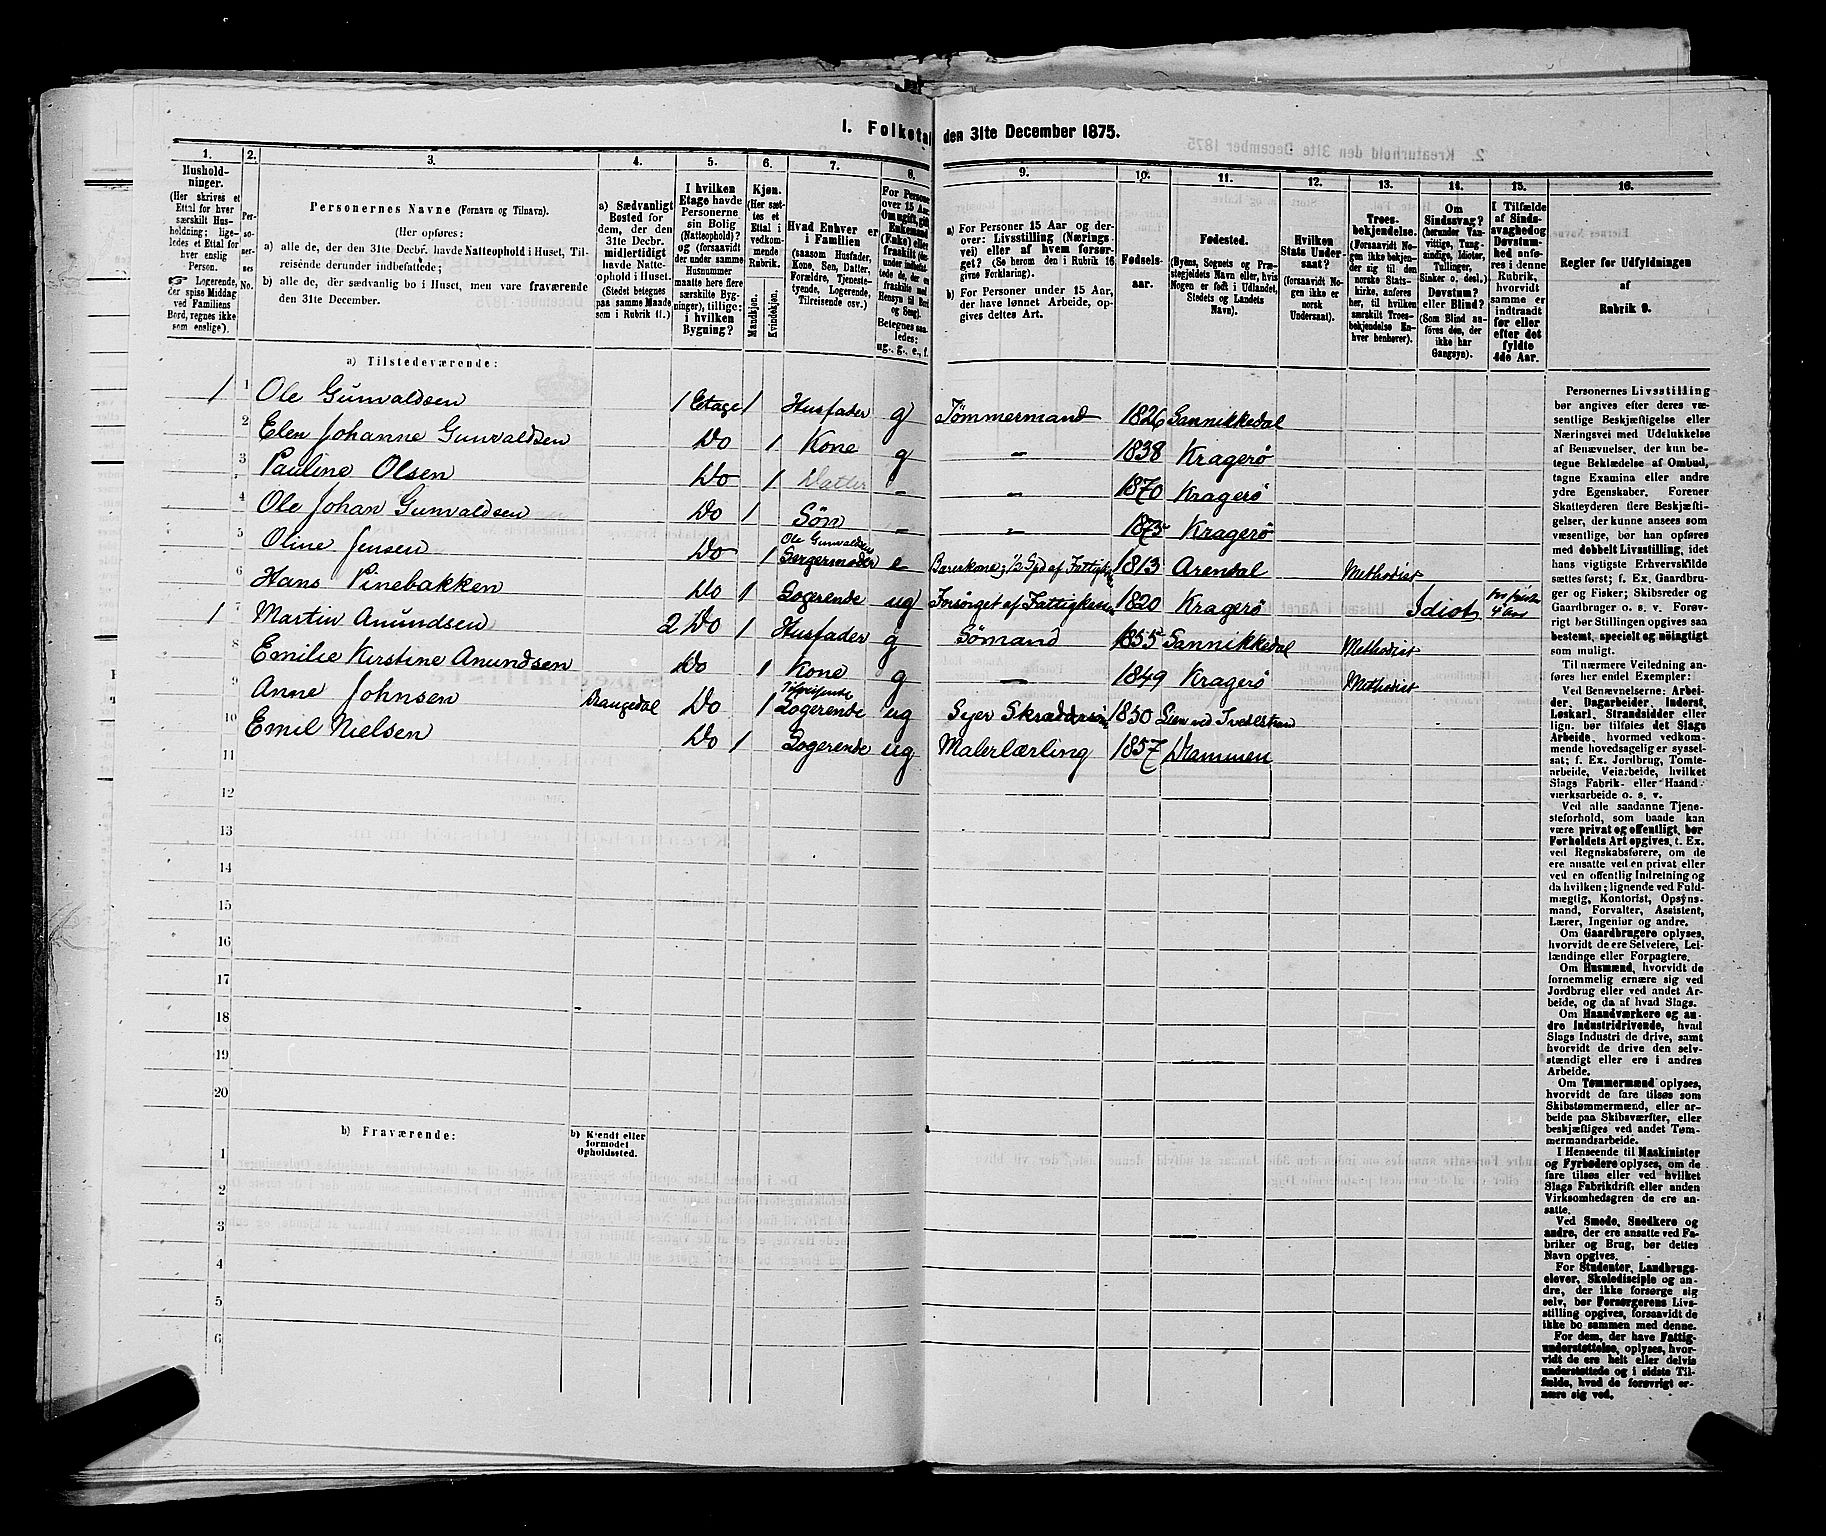 I. Folketal den 31te December 1875.
1. 2. 3. 4. 5. 6. 7. 8. 9. 10. 11. 12. 13. 14. 15. 16.
Hushold-
ninger.
(Her skrives et
Ettal for hver
særskilt Hus-
holdning; lige-
ledes et Ettal for
hver enslig
Person.
Logerende,
der spise Middag
ved Familiens
Bord, regnes ikke
som enslige).
Per-
so-
ner-
nes
No.
Personernes Navne (Fornavn og Tilnavn).
(Her opføres:
a) alle de, der den 31te Decbr. havde Natteophold i Huset, Til-
reisende derunder indbefattede;
b) alle de, der sædvanlig bo i Huset, men vare fraværende
den 31te December.
a) Sædvanligt
Bosted for
dem, der den
31te Decbr.
midlertidigt
havde Natte-
ophold i Huset.
(Stedet betegnes
paa samme Maade
som i Rubrik 11.)
I hvilken
Etage havde
Personerne
sin Bolig
(Natteophold)?
og (forsaavidt
der under samme
Husnummer
maatte høre flere
særskilte Byg-
ninger), tillige:
i hvilken
Bygning?
Kjøn.
(Her sæt-
tes et
Ettal i
vedkom-
mende
Rubrik.
Mandkjøn.
Kvindekjøn.
Hvad Enhver er
i Familien
(saasom Husfader,
Kone, Søn, Datter,
Forældre, Tjeneste-
tyende, Logerende,
Tilreisende osv.)
For Personer
over 15 Aar:
Betegnes saa-
ledes:
ug., g., e., f.
a) For Personer 15 Aar og der-
over: Livsstilling (Nærings-
vei) eller af hvem forsør-
get? (Se herom den i Rubrik 16
givne Forklaring).
b) For Personer under 15 Aar,
der have lønnet Arbeide, op-
gives dettes Art.
Fødsels-
aar.
Fødested.
(Byens, Sognets og Præ-
stegjeldets Navn eller, hvis
Nogen er født i Udlandet,
Stedets og Landets
Navn).
Hvilken
Stats Under-
saat?
(forsaavidt No-
gen ikke er
norsk
Undersaat).
Troes-
bekjendelse.
(Forsaavidt No-
gen ikke bekjen-
der sig til den
norske Stats-
kirke, anføres
her, til hvilken
særskilt Troes-
bekjendelse En-
hver henhører).
Om
Sindssvag?
(herunder Van-
vittige, Tung-
sindige, Idioter,
Tullinger,
Sinker o. desl.)
Døvstum?
eller Blind?
(Som Blind an-
føres den, der
ikke har
Gangsyn).
I Tilfælde
af Sinds-
svaghed og
Døvstum-
hed anfø-
res i denne
Rubrik,
hvorvidt
samme er
indtraadt
før eller
efter det
fyldte
4de Aar.
Regler for Udfyldningen
af
Rubrik 9.
a) Tilstedeværende:
1 1 Ole Gunvaldsen 1 Etage 1 Husfader g Tømmermand 1826 Sannikkedal
2 Elen Johanne Gunvaldsen Do 1 Kone g - 1838 Kragerö
3 Pauline Olsen Do 1 Datter - - 1870 Kragerö
4 Ole Johan Gunvaldsen Do 1 Sön - - 1875 Kragerö
5 Oline Jensen Do 1 Ole Gunvaldsens Svigermoder e 1813 Arendal Methodist
6 Hans Pinebakken Do 1 Logerende ug Forsörget af Fattigkassen 1820 Kragerö Idiot
1 7 Martin Anundsen 2 Do 1 Husfader g Sömand 1855 Sannikkedal Methodist
8 Emilie Kirstine Anundsen Do 1 Kone g - 1849 Kragerö Methodist
9 Anne Johnsen Drangedal Do 1 Tilreisende Logerende ug Syer Skræddersöm 1850
10 Emil Nielsen Do 1 Logerende ug Malerlærling 1857 Drammen
11
12
13
14
15
16
17
18
19
20
b) Fraværende:
b) Kjendt eller
formodet
Opholdssted.
1
2
3
4
5
6
Personernes Livsstilling
bør angives efter deres væ-
sentlige Beskjæftigelse eller
Næringsvei med Udelukkelse
af Benævnelser, der kun be-
tegne Beklædelse af Ombud,
tagne Examina eller andre
ydre Egenskaber. Forener
Skatteyderen flere Beskjæfti-
gelser, der kunne ansees som
væsentlige, bør han opføres
med dobbelt Livsstilling, idet
hans vigtigste Erhvervskilde
sættes først; f. Ex. Gaardbru-
ger og Fisker; Skibsreder og
Gaardbruger o. s. v. Forøv-
rigt bør Stillingen opgives saa
bestemt, specielt og nöiagtigt
som muligt.
Til nærmere Veiledning an-
føres her endel Exempler:
Ved Benævnelserne: Arbei-
der, Dagarbeider, Inderst,
Løskarl, Strandsidder eller
lign. bør tilføies det Slags
Arbeide, hvormed vedkom-
mende hovedsagelig er syssel-
sat; f. Ex. Jordbrug, Tomte-
arbeide, Veiarbeide, hvilket
Slags Fabrik- eller Haand-
værksarbeide o. s. v.
Ved alle saadanne Tjene-
steforhold, som baade kan
være privat og offentligt, bør
Forholdets Art opgives, t. Ex.
ved Regnskabsførere, om de
ere ansatte ved en privat eller
ved en offentlig Indretning og
da hvilken; lignende ved Fuld-
mægtig, Kontorist, Opsyns-
mand, Forvalter, Assistent,
Lærer, Ingeniør og andre.
Om Gaardbrugere oplyses,
hvorvidt de ere Selveiere, Lei-
lændinge eller Forpagtere.
Om Husmænd, hvorvidt de
fornemmelig ernære sig ved
Jordbrug eller ved andet Ar-
beide, og da af hvad Slags.
Om Haandværkere og an-
dre Industridrivende, hvad
Slags Industri de drive, samt
hvorvidt de drive den selv-
stændigt eller ere i andres
Arbeide.
Om Tømmermænd oplyses,
hvorvidt de fare tilsøs som
Skibstømmermænd, eller ar-
beide paa Skibsværfter, eller
beskjæftiges ved andet Tøm-
mermandsarbeide.
I Henseende til Maskinister
og Fyrbødere oplyses, om de
fare tilsøs eller ved hvilket
Slags Fabrikdrift eller anden
Virksomhedsgren de ere an-
satte.
Ved Smede, Snedkere og
andre, der ere ansatte ved Fa-
briker og Brug, bør dettes
Navn opgives.
For Studenter, Landbrugs-
elever, Skoledisciple og an-
dre, der ikke forsørge sig
selv, bør Forsørgerens Livs-
stilling opgives, forsaavidt de
ikke bo sammen med denne.
For dem, der have Fattig-
understøttelse, oplyses, hvor-
vidt de ere helt eller delvis
understøttede og i sidste Til-
fælde, hvad de forøvrigt er-
nære sig ved.